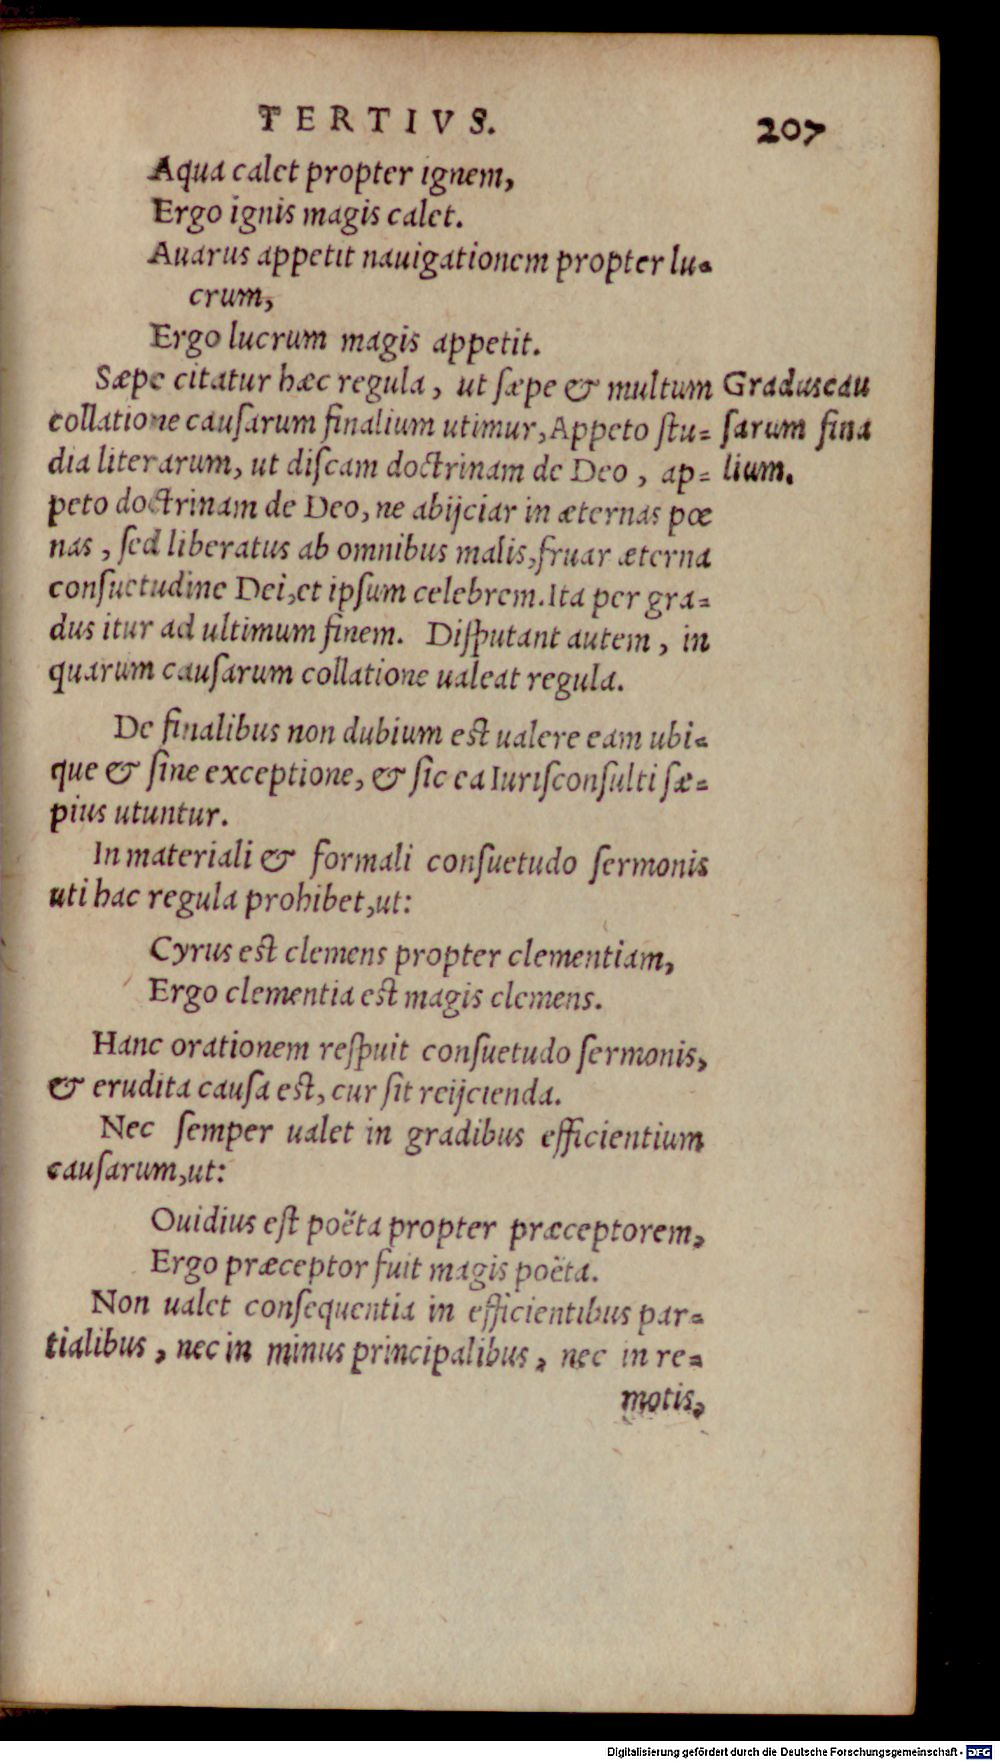 TERTIVS. 207
Aqua calet propter ignem,
Ergo ignis magis calet.
Auarus appetit nauigationem propter lu-
crum,
Ergo lucrum magis appetit.
Sæpe citatur hæc regula, ut sæpe & multum
collatione cauſarum finalium utimur, Appeto ſtu-
dia literarum, ut diſcam doctrinam de Deo, ap-
peto doctrinam de Deo, ne abijciar in æternas pœ
nas, ſed liberatus ab omnibus malis, fruar æterna
conſuetudine Dei, et ipſum celebrem. Ita per gra-
dus itur ad ultimum finem. Diſputant autem, in
quarum cauſarum collatione ualeat regula.
Graduscau
ſarum fina
lium.
De finalibus non dubium eſt ualere eam ubi-
que & ſine exceptione, & ſic ea Iuriſconſulti ſæ-
pius utuntur.
In materiali & formali conſuetudo ſermonis
uti hac regula prohibet, ut:
Cyrus eſt clemens propter clementiam,
Ergo clementia eſt magis clemens.
Hanc orationem reſpuit conſuetudo ſermonis,
& erudita cauſa eſt, cur ſit reijcienda.
Nec ſemper ualet in gradibus efficientium
cauſarum, ut:
Ouidius eſt poëta propter præceptorem,
Ergo præceptor fuit magis poëta.
Non ualet conſequentia in efficientibus par-
tialibus, nec in minus principalibus, nec in re-
motis,
Digitalisierung gefördert durch die Deutsche Forschungsgemeinschaft - DFG